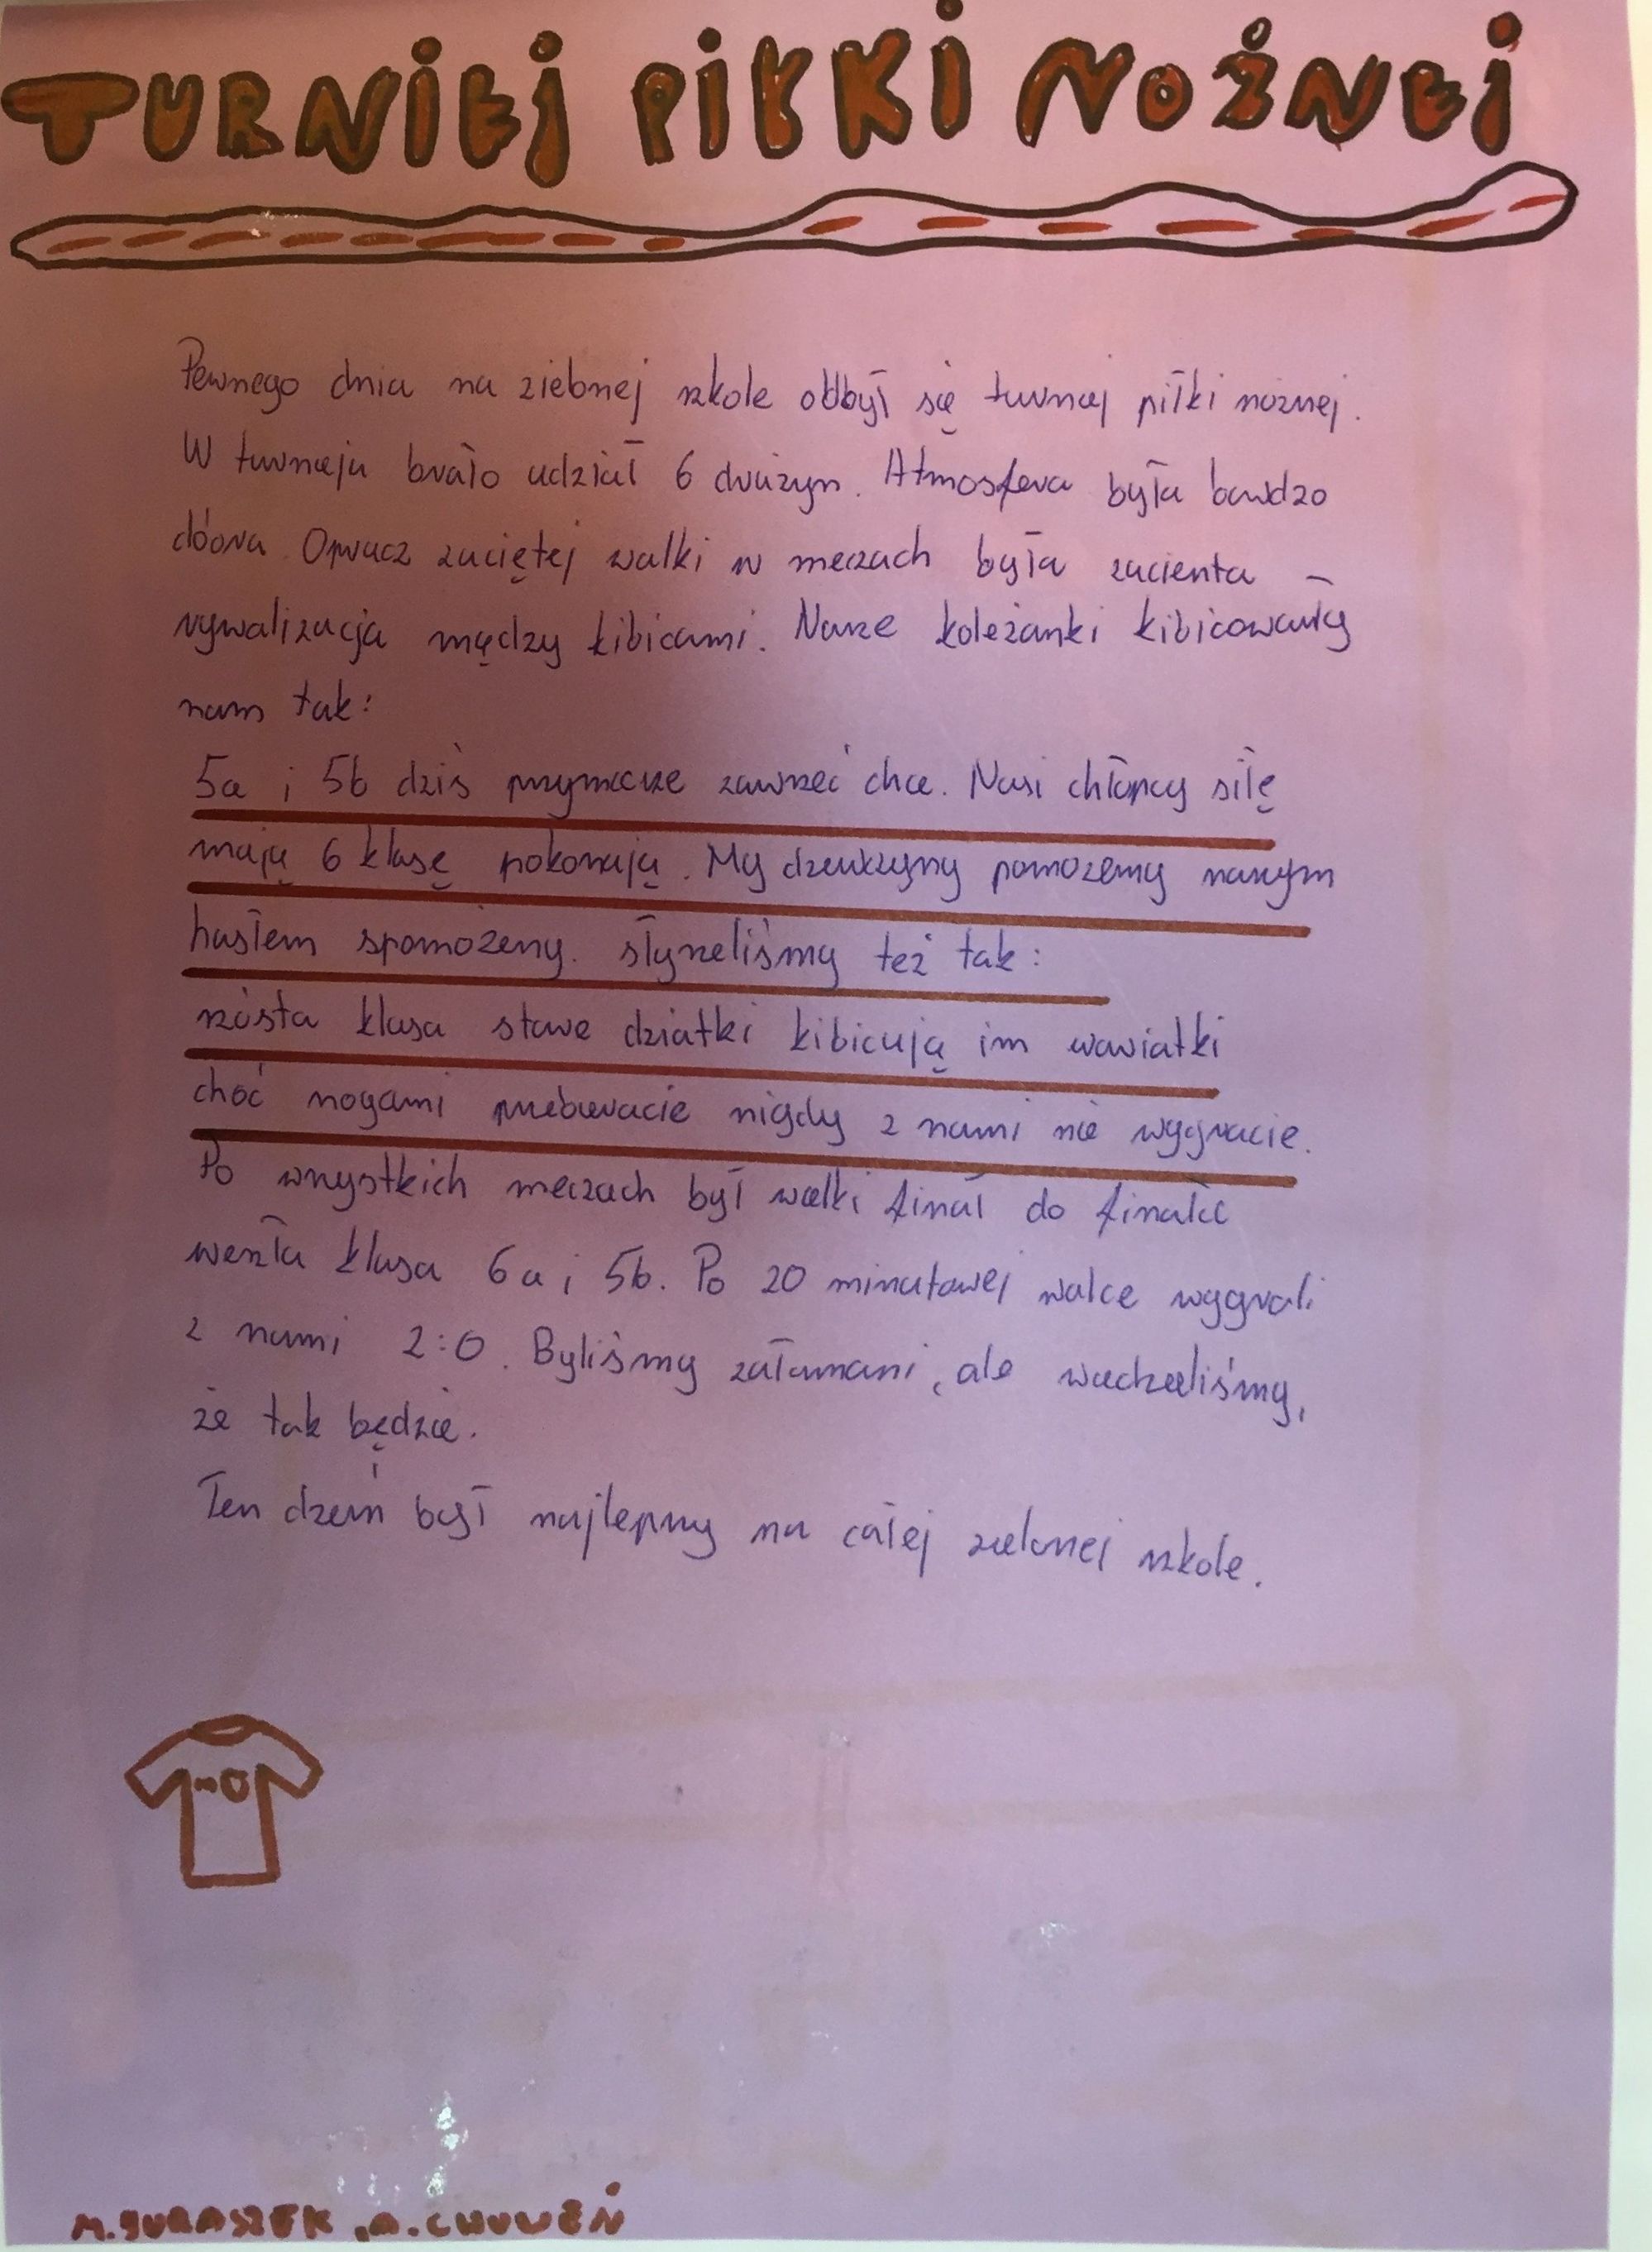 TURNIEJ PIŁKI NOŻNEJ
Pewnego dnia na zielonej szkole odbył się turniej piłki nożnej.
W turnieju brało udział 6 drużyn. Atmosfera była bardzo
dobra. Opracz zaciętej walki w meczach była zacienta
rywalizacja między kibicami. Nasze koleżanki kibicowały
nam tak:
5a i 5b dziś przymierze zawrzeć chce. Nasi chłopcy siłę
mają 6 klasę pokonają. My dziewczyny pomożemy naszym
hasłem spomożemy. słyszeliśmy też tak:
szósta klasa stare dziatki kibicują im wariatki
choć nogami przebieracie nigdy z nami nie wygracie.
Po wszystkich meczach był wielki finał do finału
weszła klasa 6a i 5b. Po 20 minutowej walce wygrali
z nami 2:0. Byliśmy załamani, ale wiedzieliśmy,
że tak będzie.
Ten dzień był najlepszy na całej zielonej szkole.
M. JURASZEK, A.